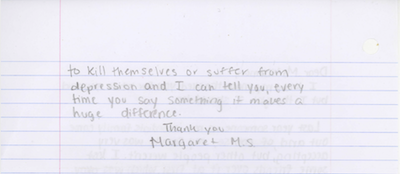 to kill themselves or suffer from
depression and I can tell you, every
time you say something it makes a
huge difference.
Thank you
Margaret M.S.